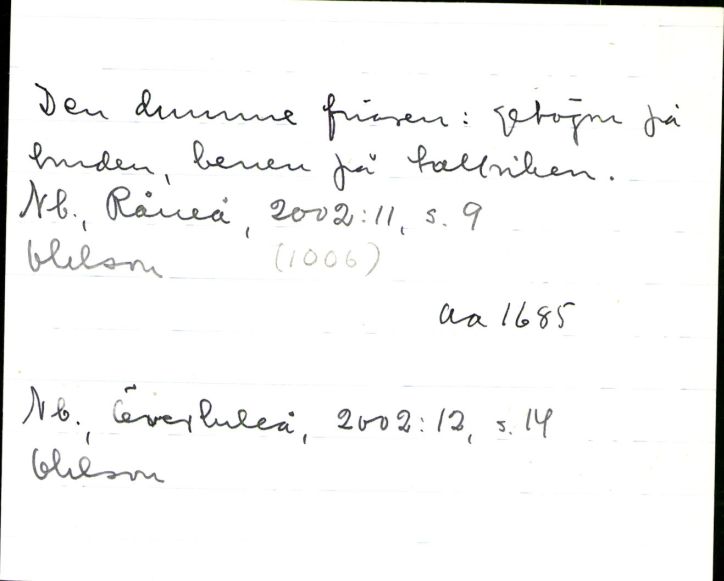 Den dumme friaren: getögon på
bruden, benen på tallriken.
Nb., Råneå, 2002:11, s. 9
Ohlson (1006)
aa 1685
Nb., Överluleå, 2002:12, s. 14
Ohlson